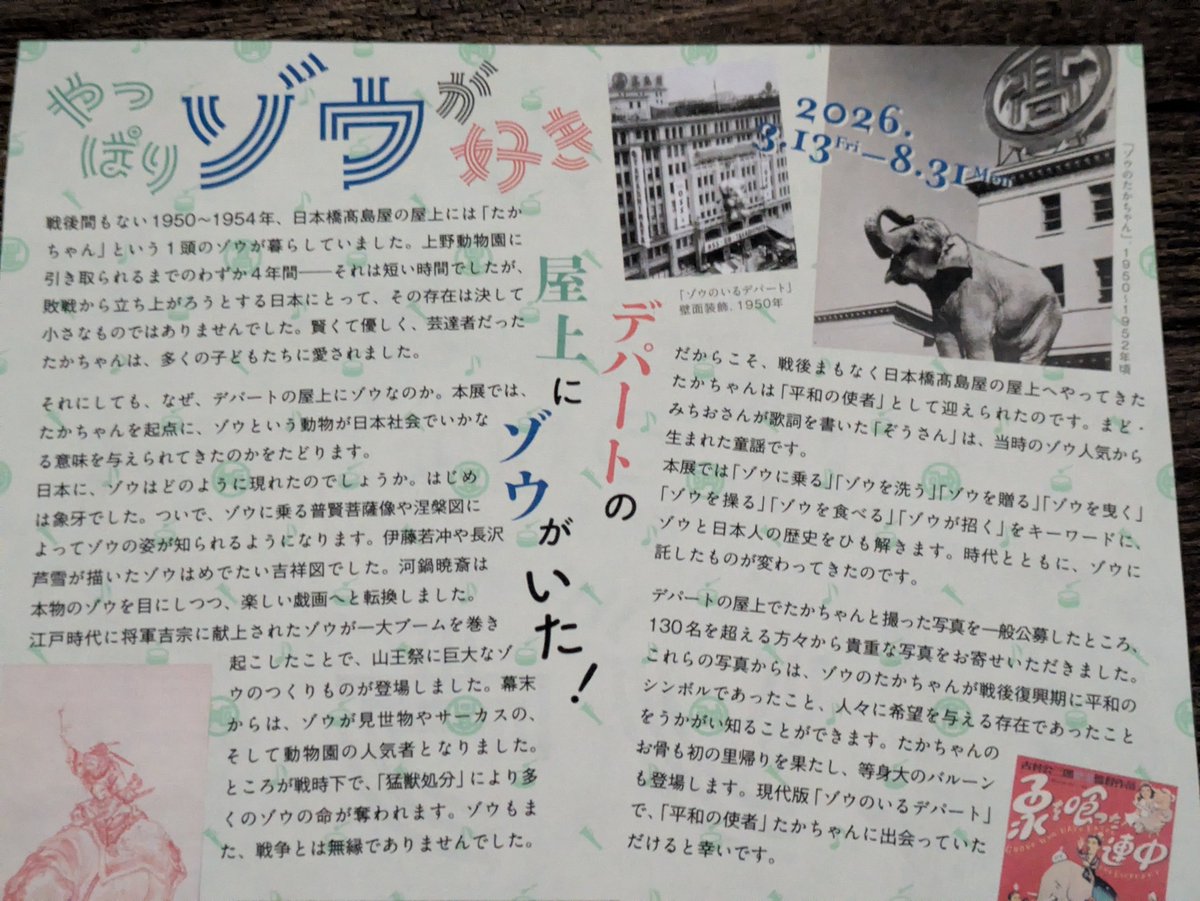 やっぱり ゾウが好き
2026.
3.13 Fri — 8.31 Mon
高島屋
髙
「ゾウのたかちゃん」、1950〜1952年頃
「ゾウのいるデパート」
壁面装飾、1950年
デパートの
屋上にゾウがいた!
戦後間もない1950〜1954年、日本橋髙島屋の屋上には「たか
ちゃん」という1頭のゾウが暮らしていました。上野動物園に
引き取られるまでのわずか4年間——それは短い時間でしたが、
敗戦から立ち上がろうとする日本にとって、その存在は決して
小さなものではありませんでした。賢くて優しく、芸達者だった
たかちゃんは、多くの子どもたちに愛されました。
それにしても、なぜ、デパートの屋上にゾウなのか。本展では、
たかちゃんを起点に、ゾウという動物が日本社会でいかな
る意味を与えられてきたのかをたどります。
日本に、ゾウはどのように現れたのでしょうか。はじめ
は象牙でした。ついで、ゾウに乗る普賢菩薩像や涅槃図に
よってゾウの姿が知られるようになります。伊藤若冲や長沢
芦雪が描いたゾウはめでたい吉祥図でした。河鍋暁斎は
本物のゾウを目にしつつ、楽しい戯画へと転換しました。
江戸時代に将軍吉宗に献上されたゾウが一大ブームを巻き
起こしたことで、山王祭に巨大なゾ
ウのつくりものが登場しました。幕末
からは、ゾウが見世物やサーカスの、
そして動物園の人気者となりました。
ところが戦時下で、「猛獣処分」により多
くのゾウの命が奪われます。ゾウもま
た、戦争とは無縁でありませんでした。
だからこそ、戦後まもなく日本橋髙島屋の屋上へやってきた
たかちゃんは「平和の使者」として迎えられたのです。まど・
みちおさんが歌詞を書いた「ぞうさん」は、当時のゾウ人気から
生まれた童謡です。
本展では「ゾウに乗る」「ゾウを洗う」「ゾウを贈る」「ゾウを曳く」
「ゾウを操る」「ゾウを食べる」「ゾウが招く」をキーワードに、
ゾウと日本人の歴史をひも解きます。時代とともに、ゾウに
託したものが変わってきたのです。
デパートの屋上でたかちゃんと撮った写真を一般公募したところ、
130名を超える方々から貴重な写真をお寄せいただきました。
これらの写真からは、ゾウのたかちゃんが戦後復興期に平和の
シンボルであったこと、人々に希望を与える存在であったこと
をうかがい知ることができます。たかちゃんの
お骨も初の里帰りを果たし、等身大のバルーン
も登場します。現代版「ゾウのいるデパート」
で、「平和の使者」たかちゃんに出会っていた
だけると幸いです。
象を喰った連中